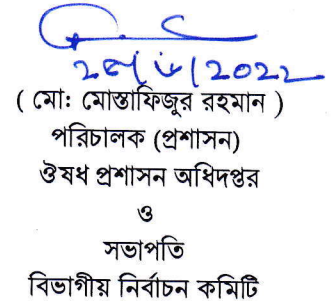 ( মো: মোস্তাফিজুর রহমান )
পরিচালক (প্রশাসন)
ঔষধ প্রশাসন অধিদপ্তর
ও
সভাপতি
বিভাগীয় নির্বাচন কমিটি